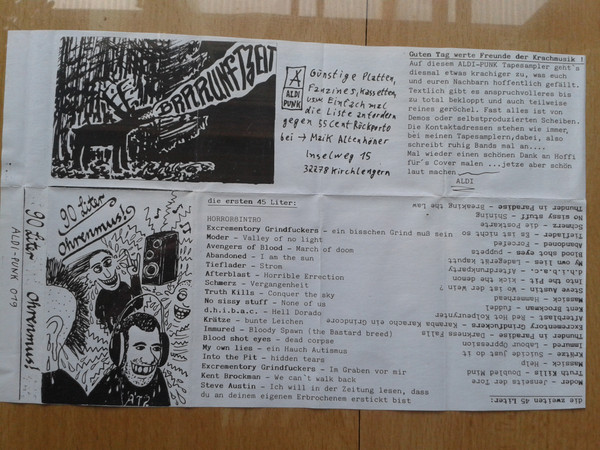 BRRRUNFTZEIT
A
ALDI
PUNK
Günstige Platten,
Fanzines, Kassetten,
usw Einfach mal
die Liste anfordern
gegen 55 Cent Rückporto
bei → Maik Altenhöner
Inselweg 15
32278 Kirchlengern
Guten Tag werte Freunde der Krachmusik !
Auf diesem ALDI-PUNK Tapesampler geht´s
diesmal etwas krachiger zu, was euch
und euren Nachbarn hoffentlich gefällt.
Textlich gibt es anspruchvolleres bis
zu total bekloppt und auch teilweise
reines geröchel. Fast alles ist von
Demos oder selbstproduzierten Scheiben.
Die Kontaktadressen stehen wie immer,
bei meinen Tapesamplern,dabei, also
schreibt ruhig Bands mal an....
Mal wieder einen schönen Dank an Hoffi
für´s Cover malen ...jetze aber schön
laut machen
ALDI
90 liter Ohrenmus!
ALDI-PUNK 019
90 liter
Ohrenmus!
die ersten 45 Liter:
HORRORSINTRO
Excrementory Grindfuckers - ein bisschen Grind muß sein
Moder - Valley of no light
Avengers of Blood - March of doom
Abandoned - I am the sun
Tieflader - Strom
Afterblast - Horrible Errection
Schmerz - Vergangenheit
Truth Kills - Conquer the sky
No sissy stuff - None of us
d.h.i.b.a.c. - Hell Dorado
Krätze - bunte Leichen
Insured - Bloody Spawn (the Bastard breed)
Blood shot eyes - dead corpse
My own lies - ein Hauch Autismus
Into the Pit - hidden tears
Excrementory Grindfuckers - Im Graben vor mir
Kent Brockman - We can´t walk back
Steve Austin - Ich will in der Zeitung lesen, dass
du an deinem eigenem Erbrochenem erstickt bist
die zweiten 45 Liter:
Moder - Jenseits der Tore
Truth Kills - Doubled Mind
Massick - Help
Krätze - Suicide just do it
Insured - Labour Oppression
Thunder in Paradise - Darkness Falls
Excrementory Grindfuckers - Karanoka Karacho ein Grindcore
Afterblast - Red Hot Kolprupturter
Kent Brockman - fuddel
Massick - Hammerhead
Steve Austin - Wo ist der dein ?
Into the Pit - kick the demon
d.h.i.b.a.c. - Afterdunkparty
My own lies - Ladegerät kaputt
Blood shot eyes - puppets
Abandoned - Forced
Tieflader - Es ist nichts so
Schmerz - die Postkarte
No sissy stuff - Shining
Thunder in Paradise - Breaking the Law